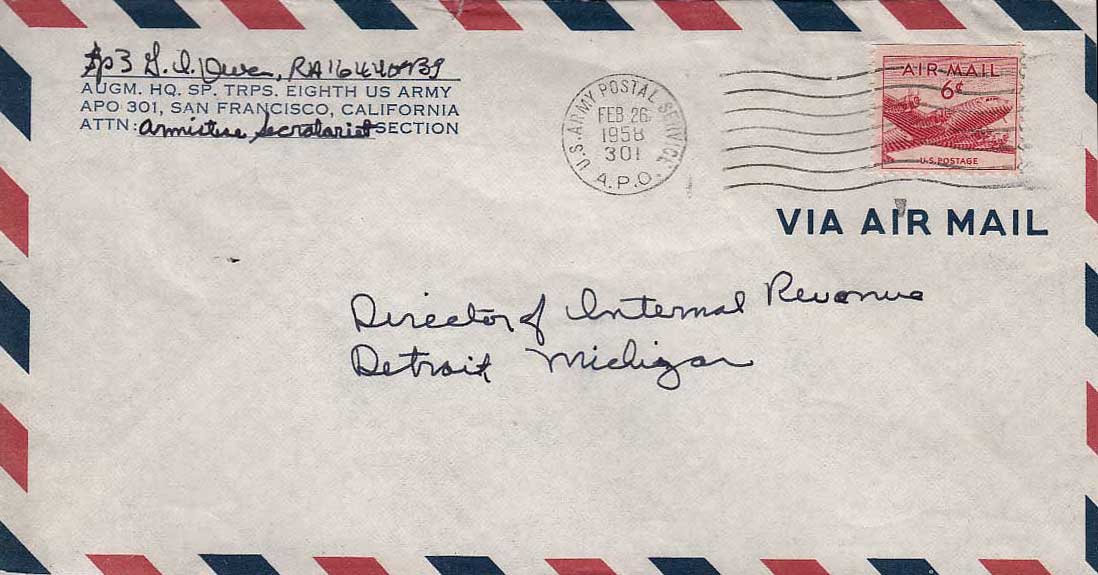 Sp3 G. I. Owen, RA16440939
AUGM. HQ. SP. TRPS. EIGHTH US ARMY
APO 301, SAN FRANCISCO, CALIFORNIA
ATTN: Armistice Secratariat SECTION
U.S. ARMY POSTAL SERVICE
FEB 26
1958
301
A.P.O.
AIR MAIL
6¢
U.S. POSTAGE
VIA AIR MAIL
Director of Internal Revenue
Detroit Michigan